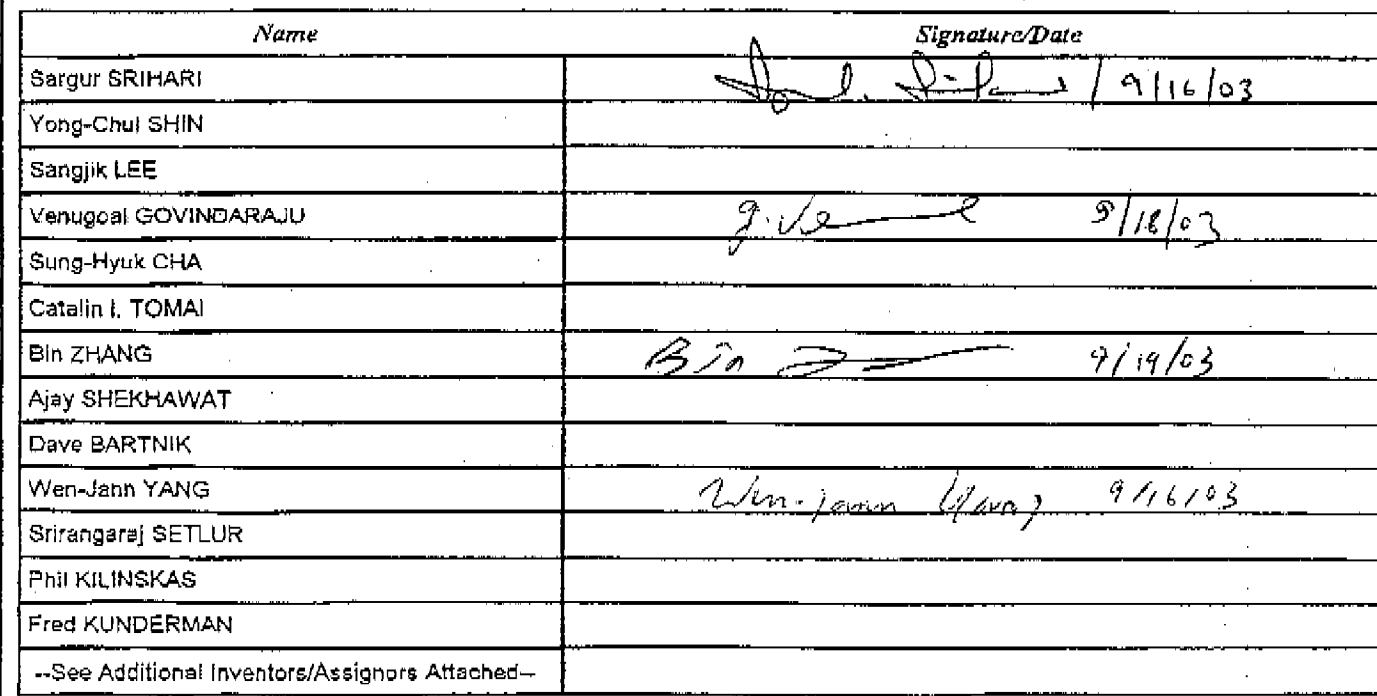 Name Signature/Date
Sargur SRIHARI 9/16/03
Yong-Chul SHIN
Sangjik LEE
Venugoal GOVINDARAJU g. Ve 9/18/03
Sung-Hyuk CHA
Catalin I. TOMAI
Bin ZHANG Bin 9/19/03
Ajay SHEKHAWAT
Dave BARTNIK
Wen-Jann YANG Wen-Jann Yang 9/16/03
Srirangaraj SETLUR
Phil KILINSKAS
Fred KUNDERMAN
--See Additional Inventors/Assignors Attached--